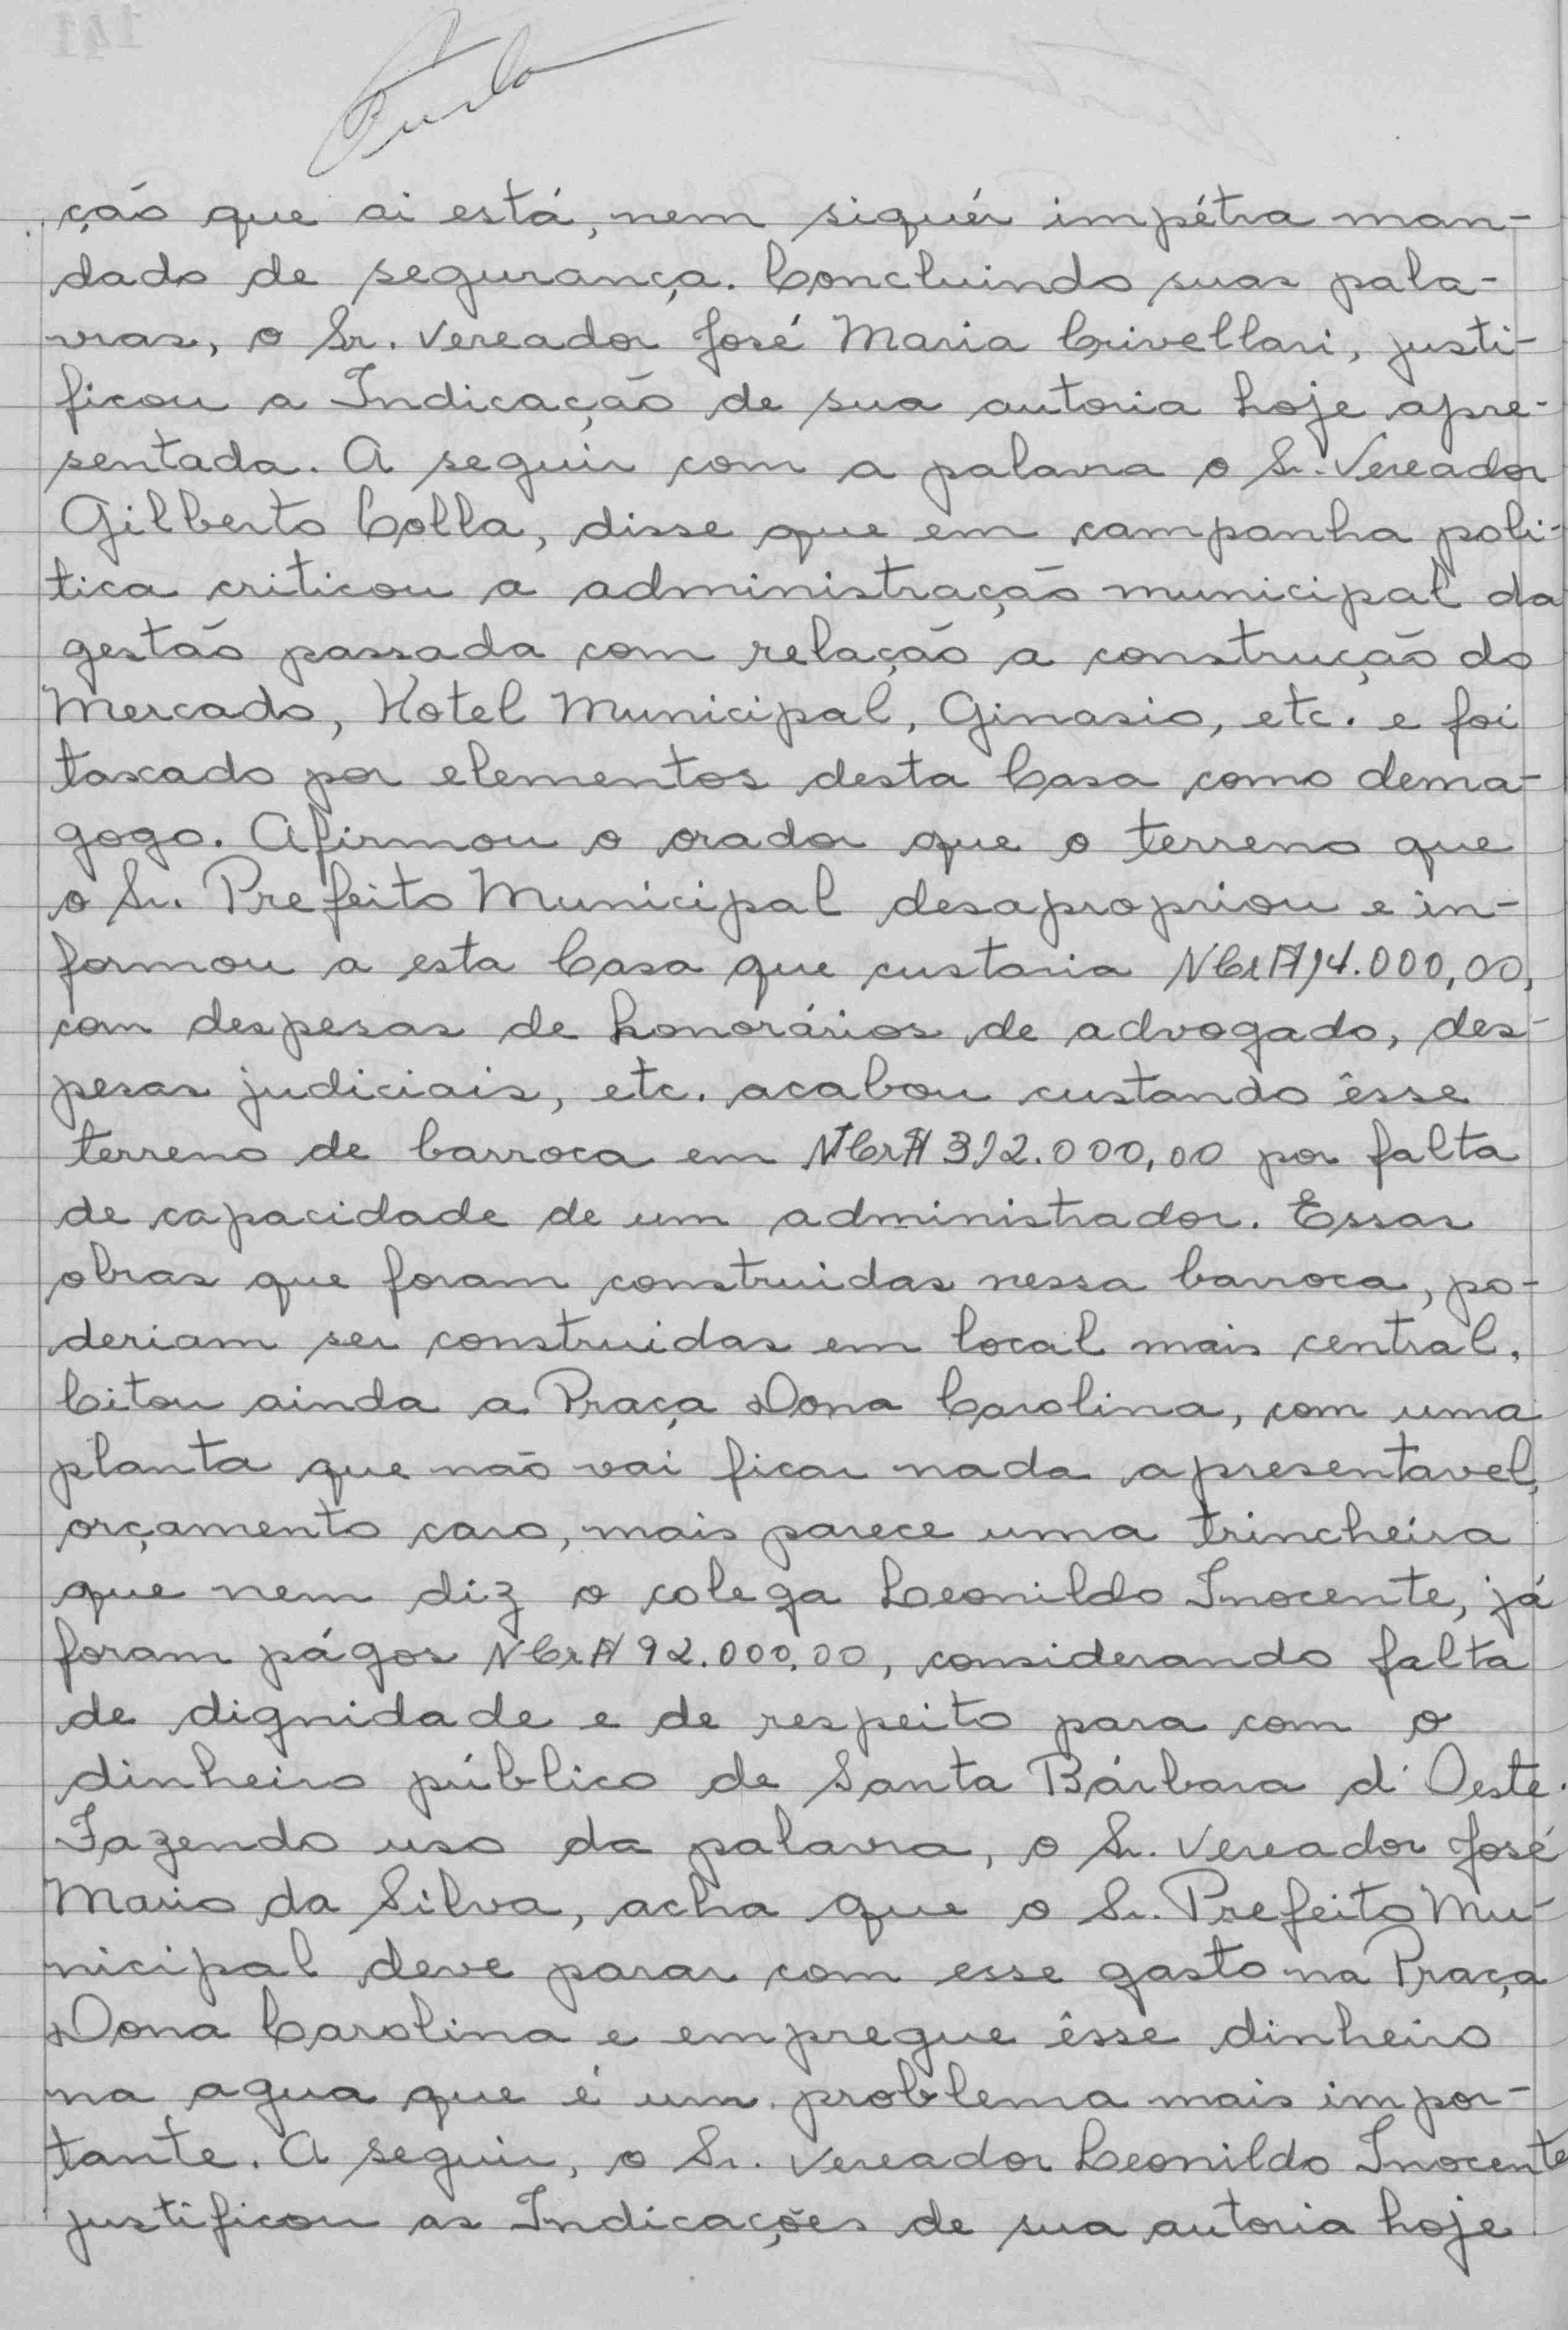 ção que ai está, nem siquér impétra man-
dado de segurança. Concluindo suas pala-
vras, o Sr. Vereador José Maria Crivellari, justi-
ficou a Indicação de sua autoria hoje apre-
sentada. A seguir com a palavra o Sr. Vereador
Gilberto Colla, disse que em campanha poli-
tica criticou a administração municipal da
gestão passada com relação a construção do
Mercado, Hotel Municipal, Ginasio, etc. e foi
taxado por elementos desta Casa como dema-
gogo. Afirmou o orador que o terreno que
o Sr. Prefeito Municipal desapropriou e in-
formou a esta Casa que custaria NCr$ 14.000,00,
com despesas de honorários de advogado, des-
pesas judiciais, etc. acabou custando êsse
terreno de barroca em NCr$ 312.000,00 por falta
de capacidade de um administrador. Essas
obras que foram construidas nessa barroca, po-
deriam ser construidas em local mais central.
Citou ainda a Praça Dona Carolina, com uma
planta que não vai ficar nada apresentavel,
orçamento caro, mais parece uma trincheira
que nem diz o colega Leonildo Inocente, já
foram págos NCr$ 92.000,00, considerando falta
de dignidade e de respeito para com o
dinheiro público de Santa Bárbara d'Oeste.
Fazendo uso da palavra, o Sr. Vereador José
Mario da Silva, acha que o Sr. Prefeito Mu-
nicipal deve parar com esse gasto na Praça
Dona Carolina e empregue êsse dinheiro
na agua que é um problema mais impor-
tante. A seguir, o Sr. Vereador Leonildo Inocente
justificou as Indicações de sua autoria hoje